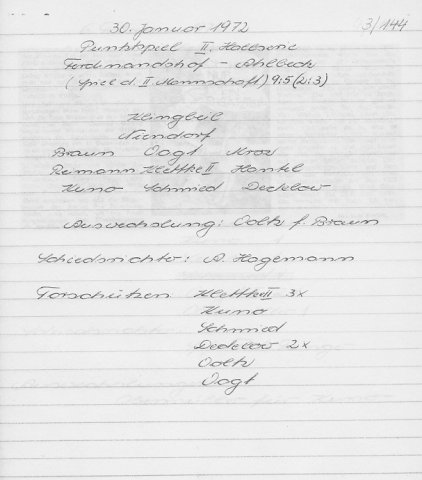 30. Januar 1972 3/144
Punktspiel II. Halbserie
Ferdinandshof - Ahlbeck
(Spiel d. II. Mannschaft) 9:5 (2:3)
Klingbeil
Niendorf
Braun Vogt
Reimann Klettke II Hantel
Kuno Schmied Dedelow
Auswechslung: Voltz f. Braun
Schiedsrichter: A. Hagemann
Torschützen Klettke II 3x
Kuno
Schmied
Dedelow 2x
Voltz
Vogt